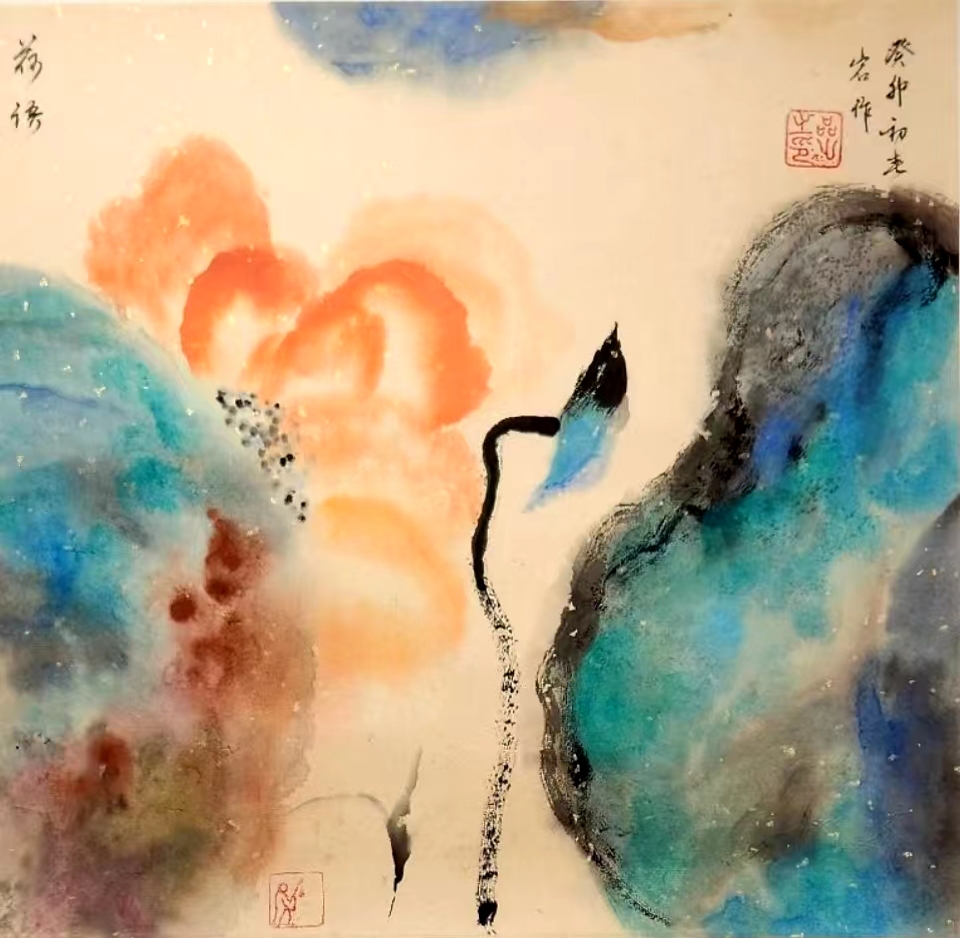 癸卯初春
岩作
荷语